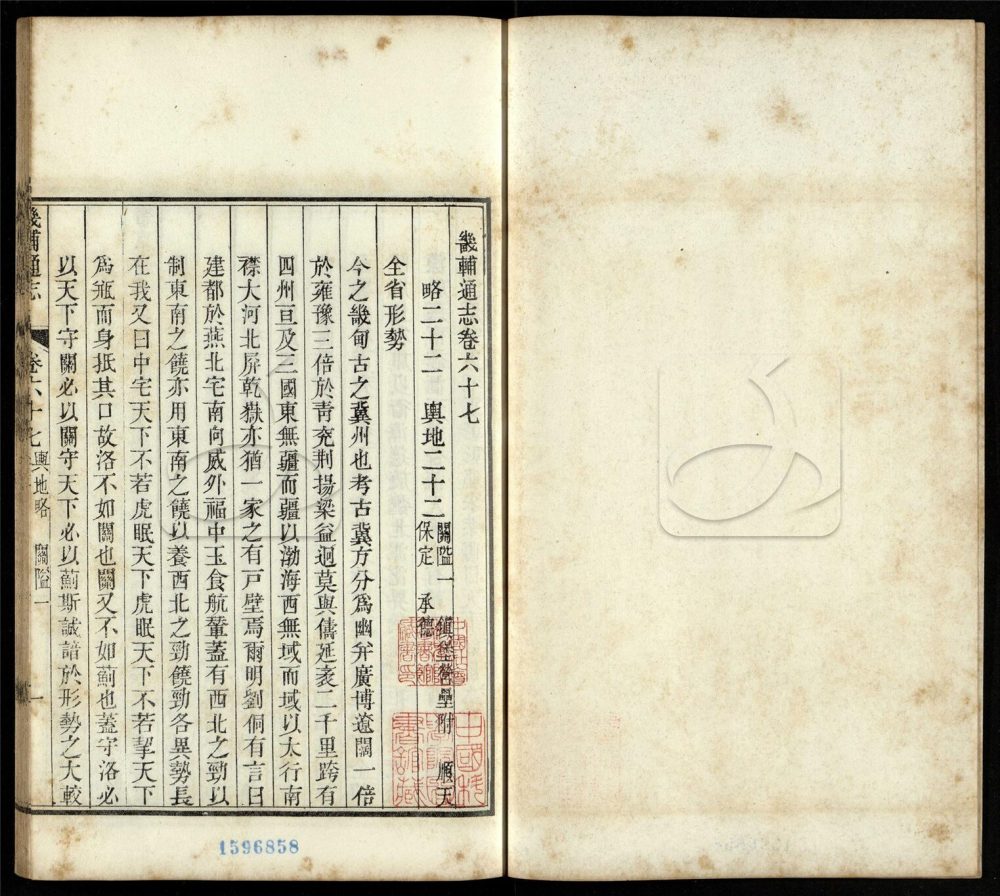 畿輔通志卷六十七
略二十二　輿地二十二　關隘一　鎮堡營壘附　順天
保定　承德
全省形勢
今之畿甸古之冀州也考古冀方分爲幽幷廣博遼闊一倍
於雍豫三倍於靑兗荆揚梁益迥莫與儔延袤二千里跨有
四州亘及三國東無疆而疆以渤海西無域而域以太行南
襟大河北屏乾嶽亦猶一家之有戸壁焉爾明劉侗有言曰
建都於燕北宅南向威外福中玉食航輦蓋有西北之勁以
制東南之饒亦用東南之饒以養西北之勁饒勁各異勢長
在我又曰中宅天下不若虎眠天下虎眠天下不若挈天下
爲瓶而身抵其口故洛不如關也關又不如薊也蓋守洛必
以天下守關必以關守天下必以薊斯誠諳於形勢之大較
畿輔通志　卷六十七　輿地略　關隘一　一
1596858